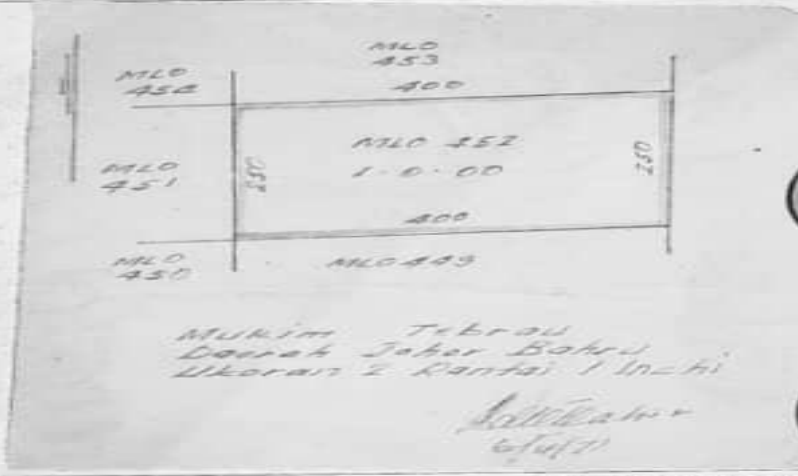 MLO
453
MLO
454
400
MLO 452
1-0-00
250
250
MLO
451
400
MLO
450
MLO 449
Mukim Tebrau
Daerah Johor Bahru
Ukoran 2 Rantai 1 Inchi